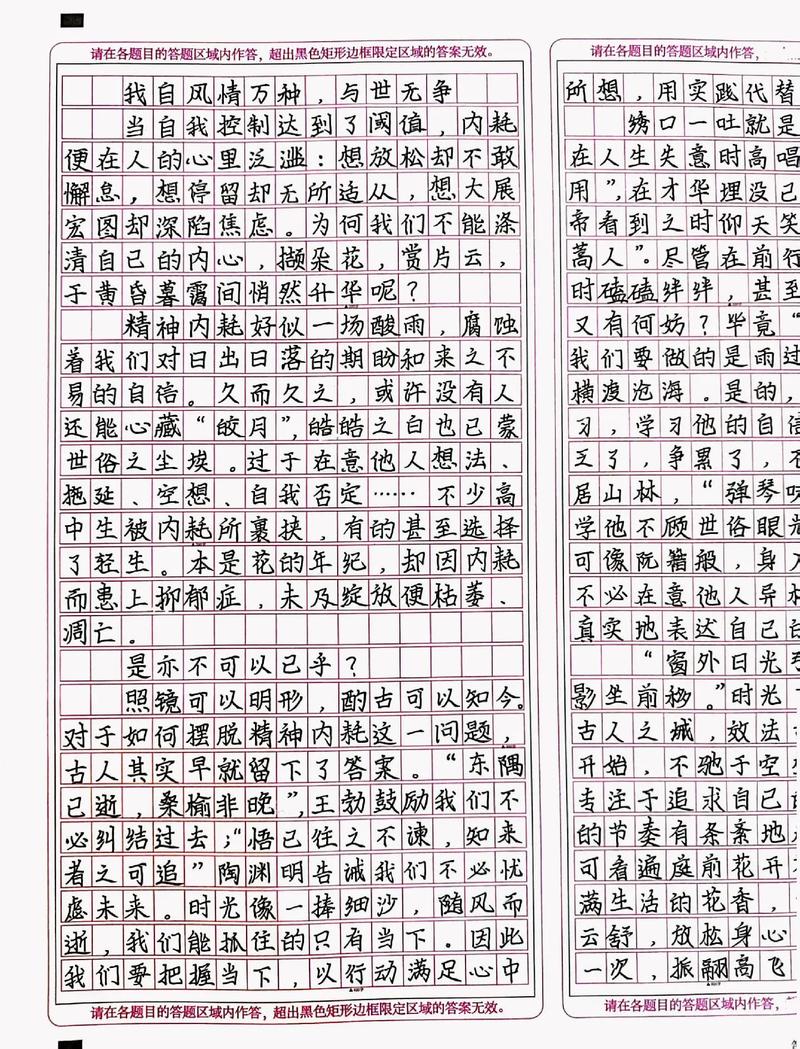 请在各题目的答题区域内作答，超出黑色矩形边框限定区域的答案无效。
我自风情万种，与世无争
当自我控制达到了阈值，内耗
便在人的心里泛滥：想放松却不敢
懈怠，想停留却无所适从，想大展
宏图却深陷焦虑。为何我们不能涤
清自己的内心，撷朵花，赏片云，
于黄昏暮霭间悄然升华呢？
精神内耗好似一场酸雨，腐蚀
着我们对日出日落的期盼和来之不
易的自信。久而久之，或许没有人
还能心藏“皎月”，皓皓之白也已蒙
世俗之尘埃。过于在意他人想法、
拖延、空想、自我否定……不少高
中生被内耗所裹挟，有的甚至选择
了轻生。本是花的年纪，却因内耗
而患上抑郁症，未及绽放便枯萎、
凋亡。
是亦不可以已乎？
照镜可以明形，酌古可以知今。
对于如何摆脱精神内耗这一问题，
古人其实早就留下了答案。“东隅
已逝，桑榆非晚”，王勃鼓励我们不
必纠结过去；“悟已往之不谏，知来
者之可追”陶渊明告诫我们不必忧
虑未来。时光像一捧细沙，随风而
逝，我们能抓住的只有当下。因此
我们要把握当下，以行动满足心中
请在各题目的答题区域内作答，超出黑色矩形边框限定区域的答案无效。
请在各题目的答题区域内作答，
所想，用实践代替
绣口一吐就是
在人生失意时高唱
用”，在才华埋没已
帝看到之时仰天笑
蒿人”。尽管在前行
时磕磕绊绊，甚至
又有何妨？毕竟“
我们要做的是雨过
横渡沧海。是的，
习，学习他的自信
了，争累了，不
居山林，“弹琴
学他不顾世俗眼光
可像阮籍般，身
不必在意他人异
真实地表达自己的
“窗外日光
影坐前移。”时光
古人之城，效法
开始，不驰于空
专注于追求自己
的节奏有条紊地
可看遍庭前花开
满生活的花香，
云舒，放松身心
一次，振翮高飞
请在各题目的答题区域内作答，超出黑色矩形边